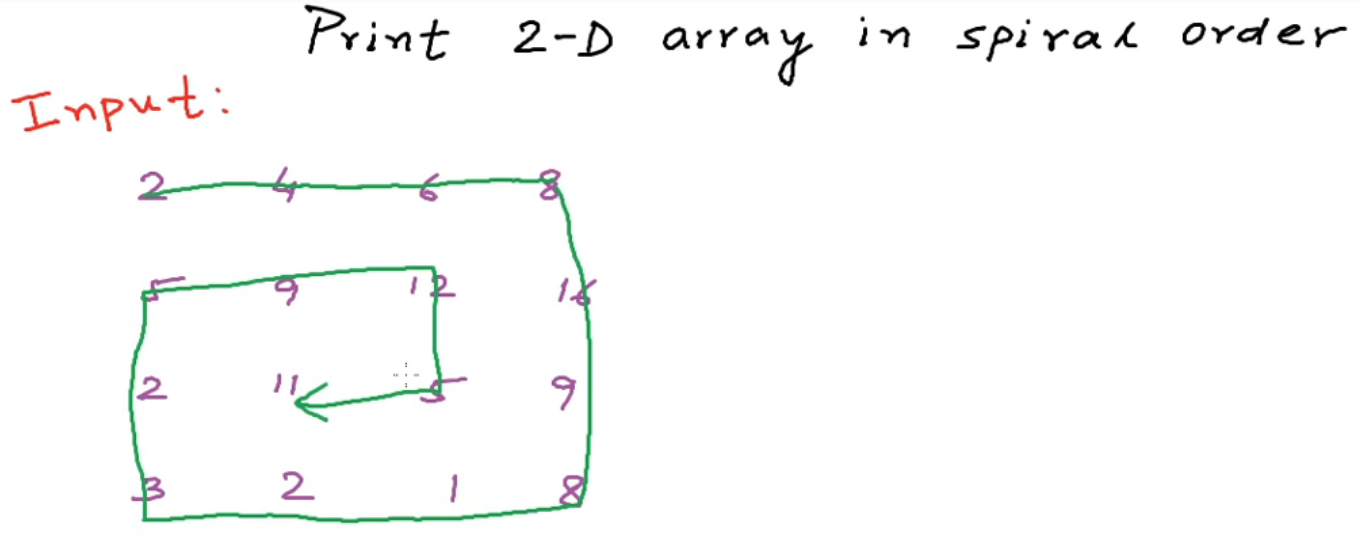 Print 2-D array in spiral order
Input:
2 4 6 8
5 9 12 16
2 11 5 9
3 2 1 8